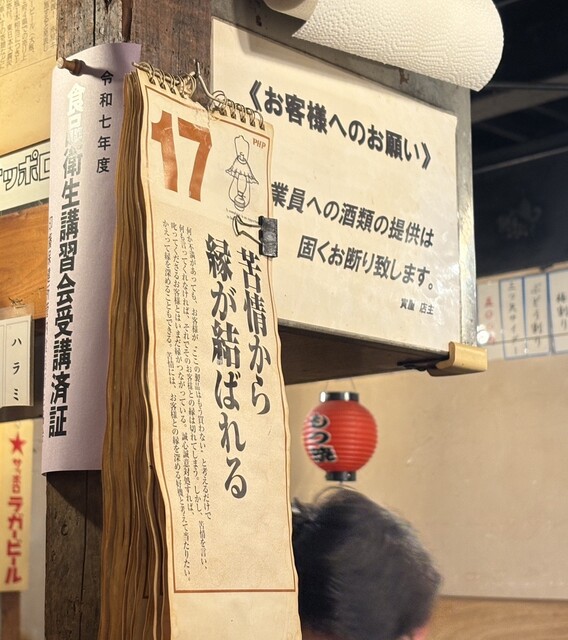 令和七年度
衛生講習会受講済証
17
PHP
苦情から
縁が結ばれる
何か不満があっても、お客様が、ここの製品はもう買わない、と考えるだけで
何も言ってくれなければ、それでそのお客様との縁は切れてしまう。しかし、苦情を言い、
叱ってくださるお客様とはいまだ縁がつながっている。誠心誠意対処すれば、
かえって縁を深めることもできる。苦情には、お客様との縁を深める好機と考えて当たりたい。
《お客様へのお願い》
業員への酒類の提供は
固くお断り致します。
店主
もつ焼
ハラミ
★サッポロ
ラガービール
ッポロ
ぶどう割り
梅割り